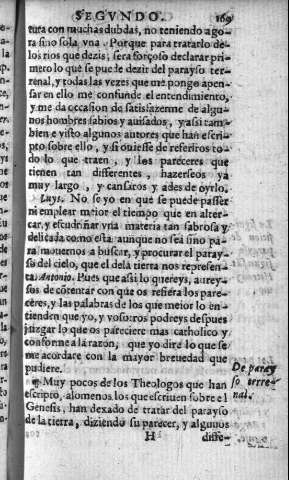 SEGVNDO. 169
tura con muchas dubdas, no teniendo ago-
ra sino sola vna. Porque para tratarlo de
los rios que dezis, sera forçoso declarar pri-
mero lo que se puede dezir del parayso ter-
renal, y todas las vezes que me pongo apen-
sar en ello me confunde el entendimiento,
y me da occasion de satisfazerme de algu-
nos hombres sabios y auisados, y assi tam-
bien e visto algunos autores que han escri-
pto sobre ello, y si ouiesse de referiros to-
do lo que traen, y los pareceres que
tienen tan differentes, hazerseos ya
muy largo, y cansaros y ades de oyrlo.
Luys. No se yo en que se puede passar
ni emplear meior el tiempo que en alter-
car, y escudriñar vna materia tan sabrosa y
delicada como esta aunque no sea sino pa-
ra mouernos a buscar, y procurar el paray-
so del cielo, que el de la tierra nos represen-
ta. Antonio. Pues que assi lo quereys, aureys-
os de contentar con que os refiera los pare-
ceres, y las palabras de los que meior lo en-
tienden que yo, y vosotros podreys despues
juzgar lo que os pareciere mas catholico y
conforme a la razon, que yo dire lo que se
me acordare con la mayor breuedad que
pudiere.
¶ Muy pocos de los Theologos que han
escripto, alomenos los que escriuen sobre el
Genesis, han dexado de tratar del parayso
de la tierra, diziendo su parecer, y algunos
H diffe-
De paray
so terre-
nal.